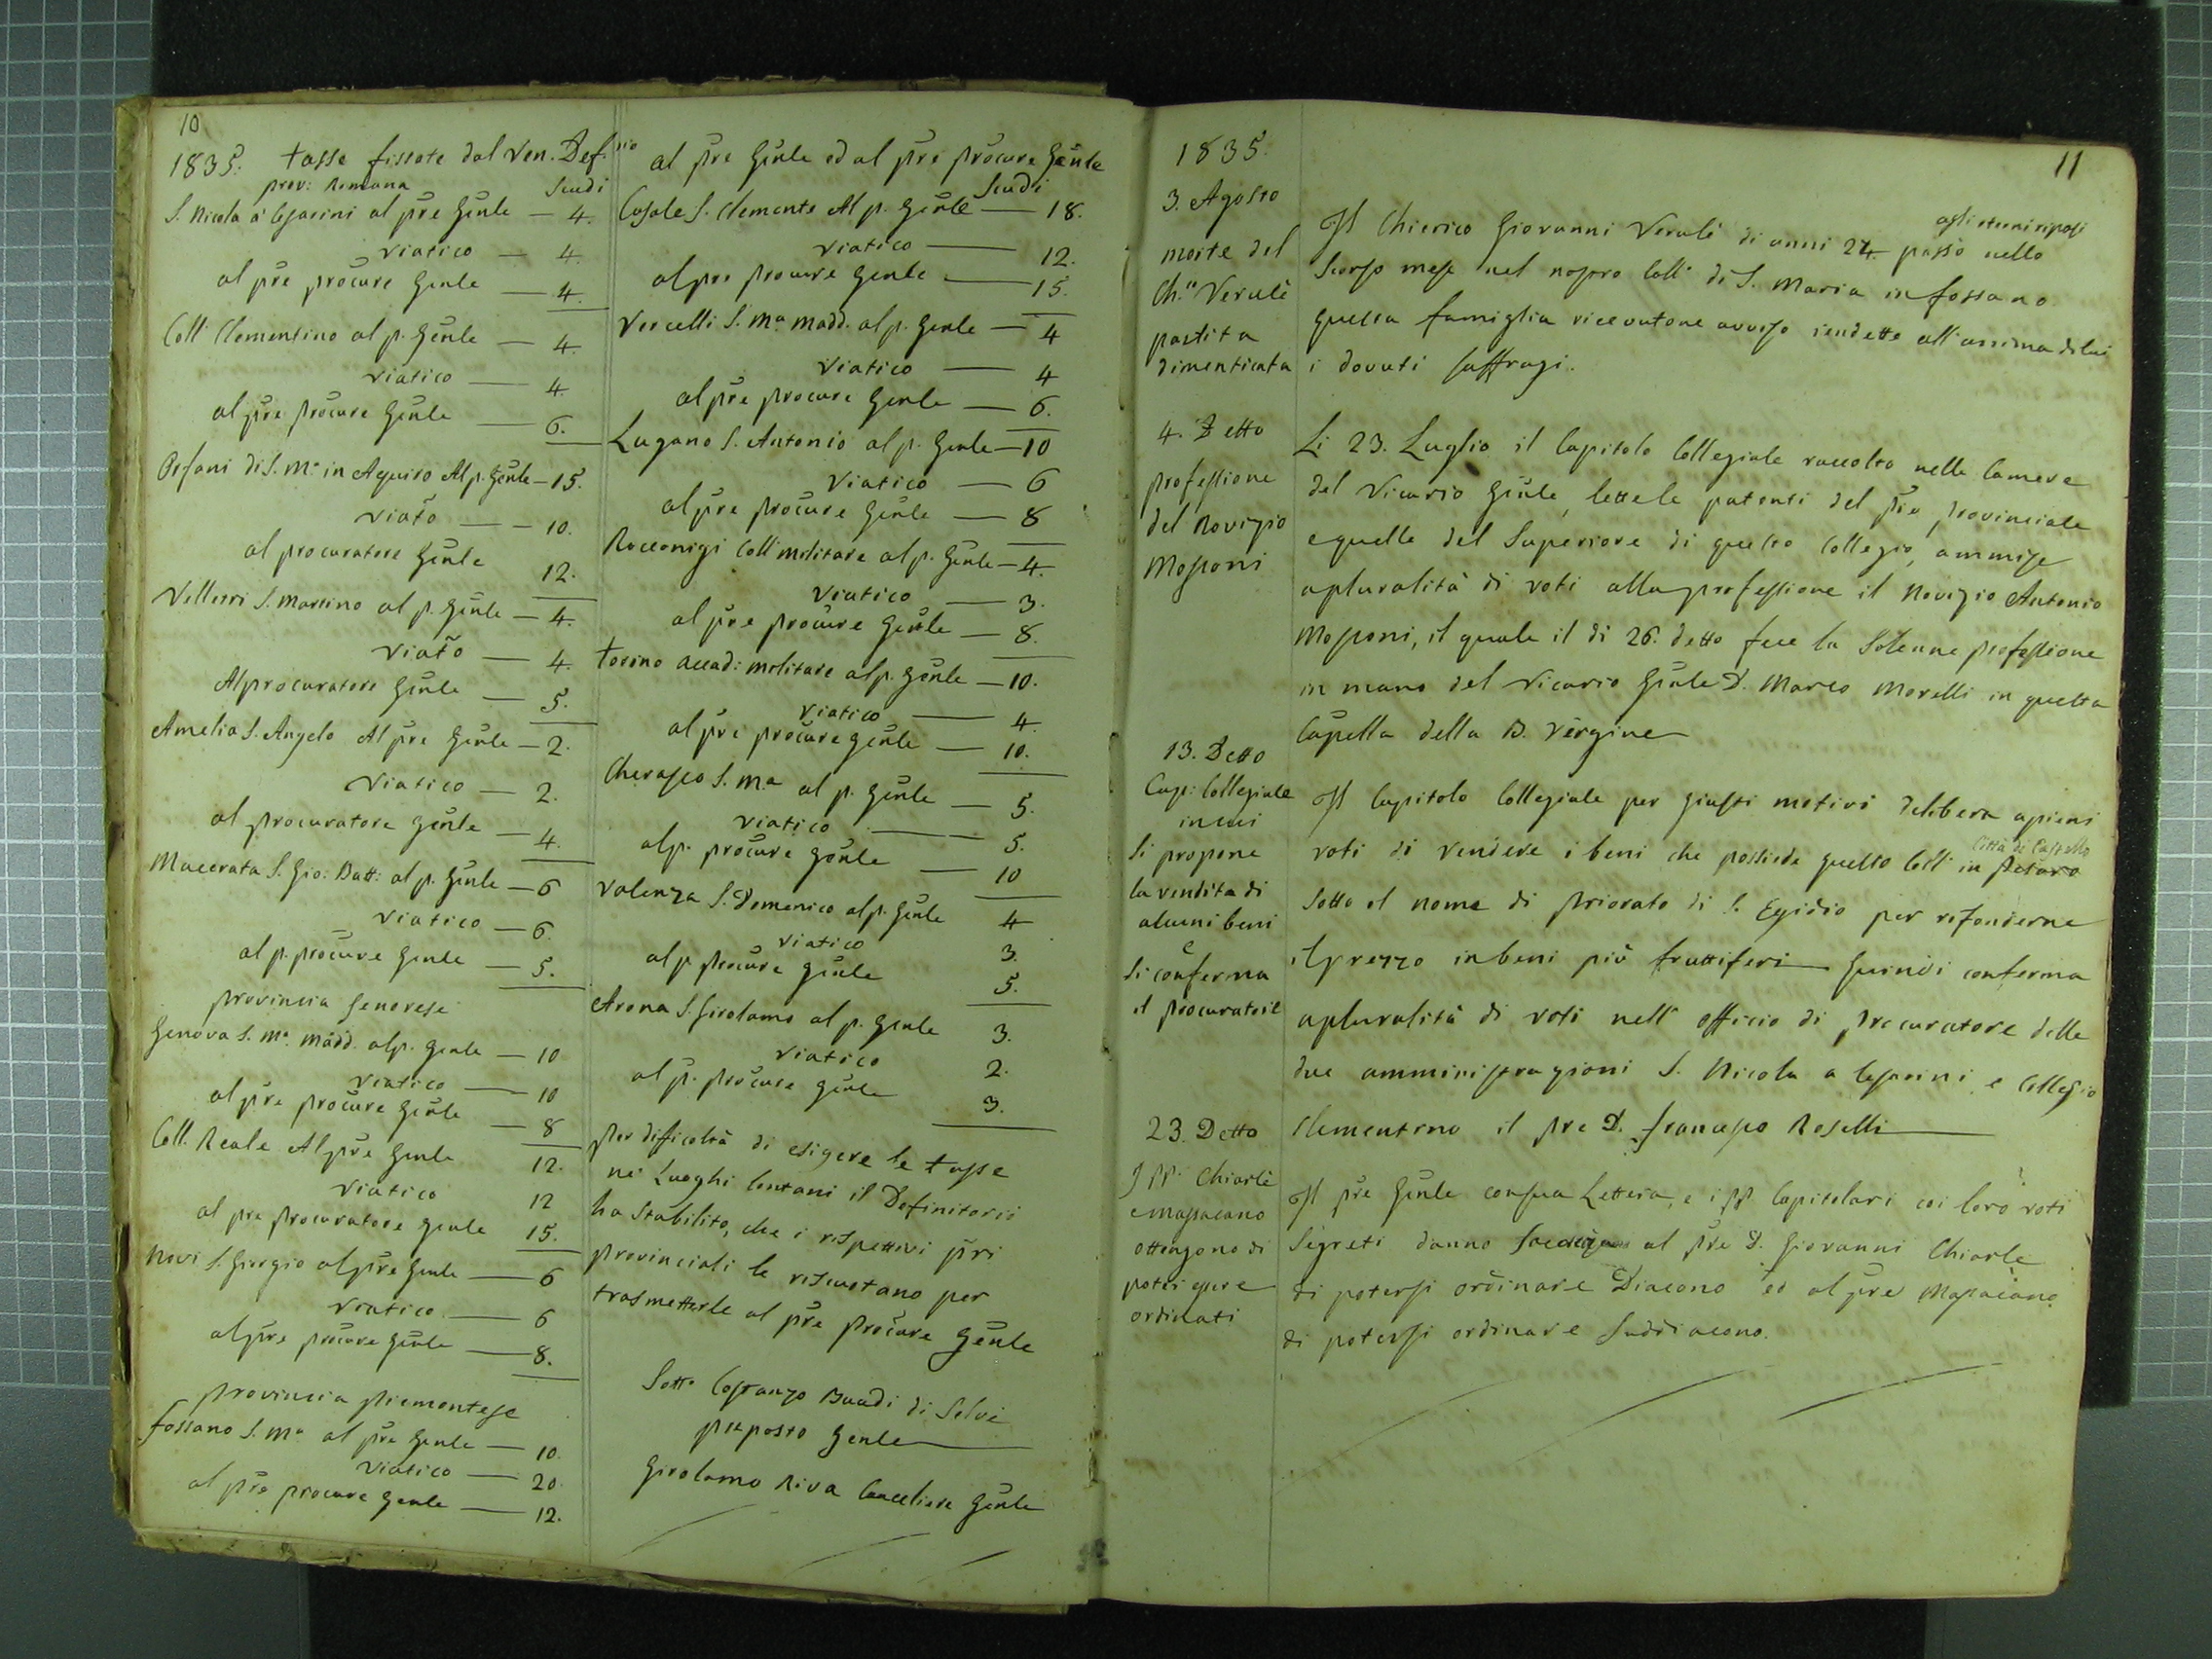 10
1835. Tasse fissate dal Ven. Def.rio
prov: Romana Scudi
S. Nicola a' Cesarini al pre Gnle — 4.
Viatico — 4.
al pre procure Gnle — 4.
Coll. Clementino al p. Gnle — 4.
Viatico — 4.
al pre procure Gnle — 6.
Orfani di S. Ma in Aquiro Al p. Gnle — 15.
Viato — 10.
al procuratore Gnle 12.
Velletri S. Martino al p. Gnle — 4.
Viato — 4.
Al procuratore Gnle — 5.
Amelia S. Angelo Al pre Gnle — 2.
Viatico — 2.
al procuratore Gnle — 4.
Macerata S. Gio: Batt: al p. Gnle — 6
Viatico — 6.
al p. procure Gnle — 5.
Provincia Genovese
Genova S. Ma. Madd. al p. Gnle — 10
Viatico — 10
al pre procure Gnle — 8
Coll. Reale Al pre Gnle 12.
Viatico 12
al pre procuratore Gnle 15.
Novi S. Giorgio al pre Gnle — 6
Viatico — 6
al pre procure Gnle — 8.
Provincia Piemontese
Fossano S. Ma al pre Gnle — 10.
Viatico — 20.
al pre procure Gnle — 12.
al pre Gnle ed al pre procure Gnle
Scudi
Casale S. Clemente Al p. Gnle — 18.
Viatico — 12.
al pre procure Gnle — 15.
Vercelli S. Ma Madd. al p. Gnle — 4
Viatico — 4
al pre procure Gnle — 6.
Lugano S. Antonio al p. Gnle — 10
Viatico — 6
al pre procure Gnle — 8
Racconigi Coll militare al p. Gnle — 4.
Viatico — 3.
al pre procure Gnle — 8.
Torino Accad: militare al p. Gnle — 10.
Viatico — 4.
al pre procure Gnle — 10.
Cherasco S. Ma al p. Gnle — 5.
Viatico — 5.
al p. procure Gnle — 10
Valenza S. Domenico al p. Gnle 4
Viatico 3.
al p procure Gnle 5.
Arona S. Girolamo al p. Gnle 3.
Viatico 2.
al p. procure Gnle 3.
Per dificoltà di esigere le tasse
ne' Luoghi lontani il Definitorio
ha stabilito, che i rispettivi pri
provinciali le riscuotano per
trasmetterle al pre procure Gnle
Sotto Costanzo Buadi di Selve
preposto Gnle
Girolamo Riva Cancelliere Gnle
11
1835.
3. Agosto
morte del
Ch.o Verulè
partita
dimenticata
Il Chierico Giovanni Verulè di anni 24 passò nello
agli eterni riposi
scorso mese nel nostro Coll di S. Maria in Fossano
questa famiglia ricevutone avviso rendette all'anima di lui
i dovuti suffragi.
4. Detto
professione
del Novizio
Mosponi
Li 23. Luglio il Capitolo Collegiale raccolto nelle Camere
del Vicario Gnle, lette le patenti del pre provinciale
e quelle del Superiore di questo Collegio, ammise
a pluralità di voti alla professione il Novizio Antonio
Mosponi, il quale il di 26. detto fece la Solenne professione
in mano del Vicario Gnle D. Marco Morelli in questa
Capella della B. Vergine
13. Detto
Cap: Collegiale
in cui
si propone
la vendita di
alcuni beni
e
si conferma
il procuratore
Il Capitolo Collegiale per giusti motivi delibera a pieni
voti di vendere i beni che possiede questo Coll in Pesaro
Città di Castello
sotto il nome di Priorato di S. Egidio per rifonderne
il prezzo in beni più fruttiferi Quindi conferma
a pluralità di voti nell' officio di procuratore delle
due amministrazioni S. Nicola a Cesarini e Collegio
Clementino il pre D. Francesco Roselli
23. Detto
I PP. Chiarlè
e Massacano
ottengono di
poter essere
ordinati
Il pre Gnle con sua Lettera, e i PP Capitolari coi loro voti
Segreti danno al pre D. Giovanni Chiarle
di potersi ordinare Diacono ed al pre Massacano
di potersi ordinare Suddiacono.